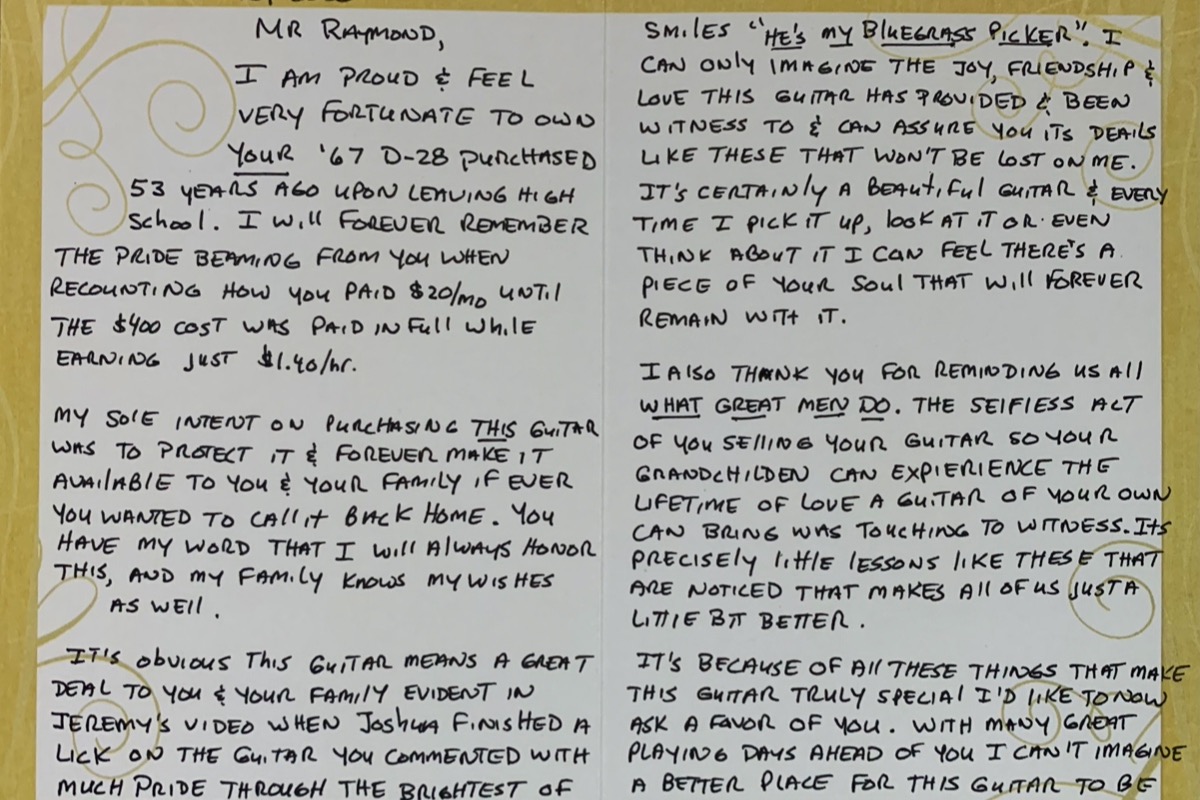 MR RAYMOND,
I AM PROUD & FEEL
VERY FORTUNATE TO OWN
YOUR '67 D-28 PURCHASED
53 YEARS AGO UPON LEAVING HIGH
SCHOOL. I WILL FOREVER REMEMBER
THE PRIDE BEAMING FROM YOU WHEN
RECOUNTING HOW YOU PAID $20/MO UNTIL
THE $400 COST WAS PAID IN FULL WHILE
EARNING JUST $1.40/hr.
MY SOLE INTENT ON PURCHASING THIS GUITAR
WAS TO PROTECT IT & FOREVER MAKE IT
AVAILABLE TO YOU & YOUR FAMILY IF EVER
YOU WANTED TO CALL it BACK HOME. YOU
HAVE MY WORD THAT I WILL ALWAYS HONOR
THIS, AND MY FAMILY KNOWS MY WISHES
AS WELL.
IT'S OBVIOUS THIS GUITAR MEANS A GREAT
DEAL TO YOU & YOUR FAMILY EVIDENT IN
JEREMY'S VIDEO WHEN JOSHUA FINISHED A
LICK ON THE GUITAR YOU COMMENTED WITH
MUCH PRIDE THROUGH THE BRIGHTEST OF
SMILES "HE'S MY BLUEGRASS PICKER". I
CAN ONLY IMAGINE THE JOY, FRIENDSHIP &
LOVE THIS GUITAR HAS PROVIDED & BEEN
WITNESS TO & CAN ASSURE YOU ITS DEAILS
LIKE THESE THAT WON'T BE LOST ON ME.
IT'S CERTAINLY A BEAUTIFUL GUITAR & EVERY
TIME I PICK IT UP, LOOK AT IT OR EVEN
THINK ABOUT IT I CAN FEEL THERE'S A
PIECE OF YOUR SOUL THAT WILL FOREVER
REMAIN WITH IT.
I ALSO THANK YOU FOR REMINDING US ALL
WHAT GREAT MEN DO. THE SELFLESS ACT
OF YOU SELLING YOUR GUITAR SO YOUR
GRANDCHILDEN CAN EXPIERIENCE THE
LIFETIME OF LOVE A GUITAR OF YOUR OWN
CAN BRING WAS TOUCHING TO WITNESS. ITS
PRECISELY LITTLE LESSONS LIKE THESE THAT
ARE NOTICED THAT MAKES ALL OF US JUST A
LITTLE BIT BETTER.
IT'S BECAUSE OF ALL THESE THINGS THAT MAKE
THIS GUITAR TRULY SPECIAL I'D LIKE TO NOW
ASK A FAVOR OF YOU. WITH MANY GREAT
PLAYING DAYS AHEAD OF YOU I CAN'T IMAGINE
A BETTER PLACE FOR THIS GUITAR TO BE